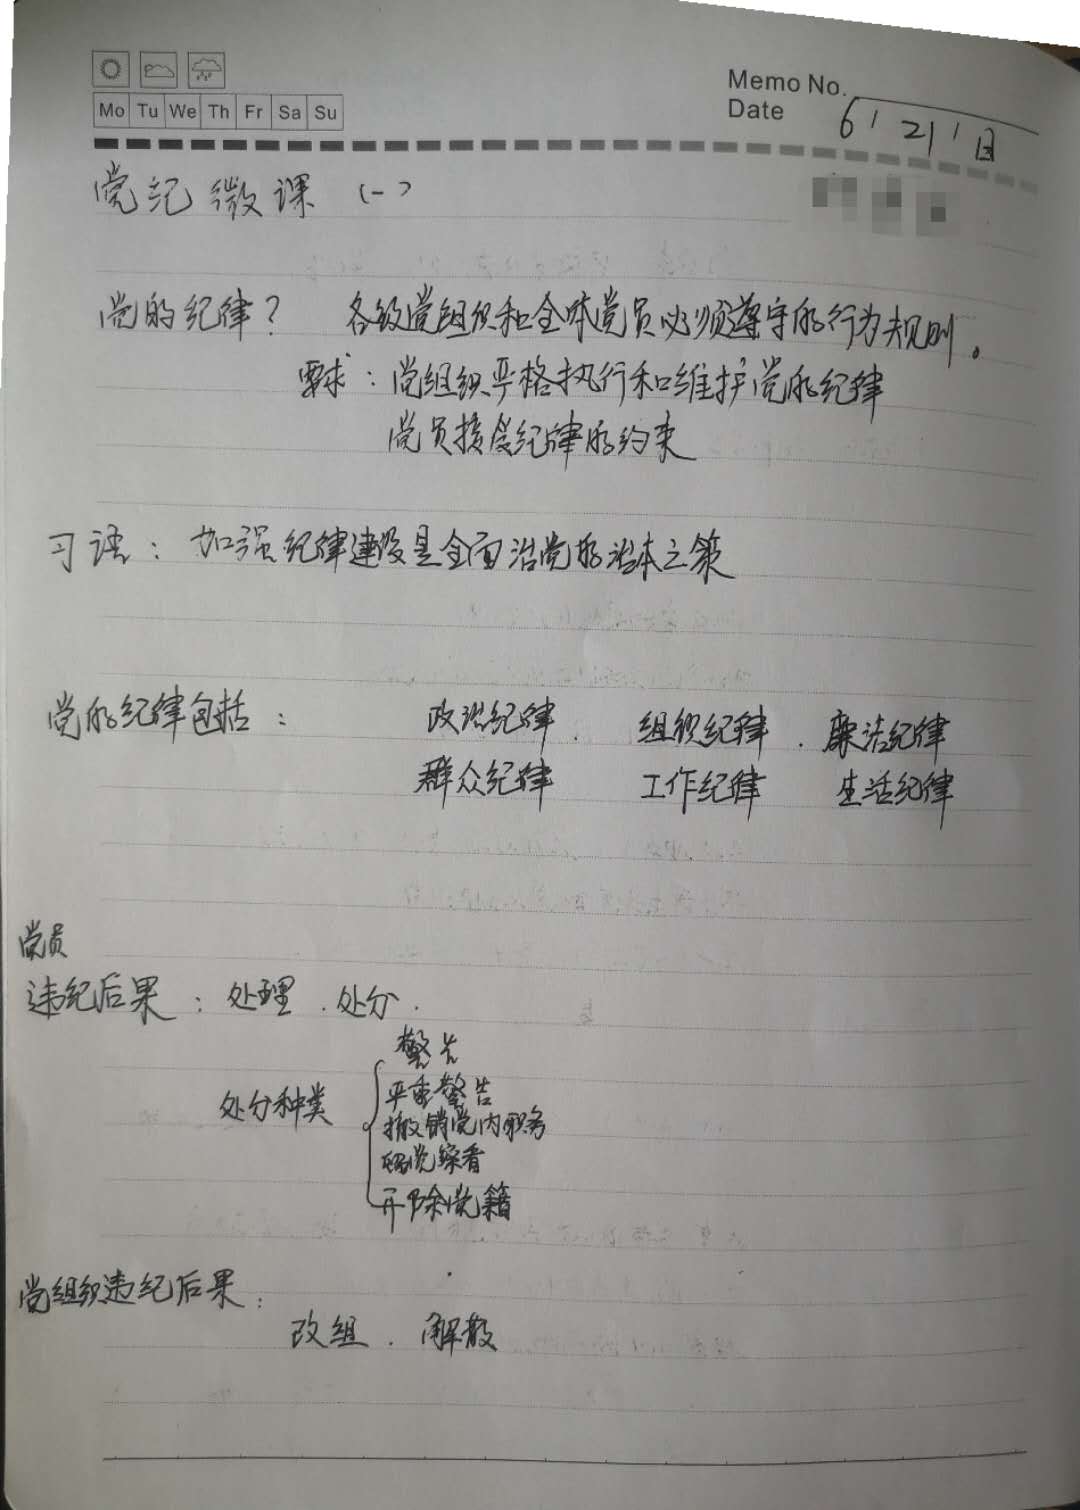 Mo Tu We Th Fr Sa Su
Memo No.
Date 6 / 21 / 日
党纪微课 (一)
党的纪律? 各级党组织和全体党员必须遵守的行为规则。
要求:党组织严格执行和维护党的纪律
党员接受纪律的约束
习语:加强纪律建设是全面治党的治本之策
党的纪律包括: 政治纪律. 组织纪律. 廉洁纪律
群众纪律 工作纪律 生活纪律
党员
违纪后果:处理.处分.
警告
严重警告
处分种类 撤销党内职务
留党察看
开除党籍
党组织违纪后果:
改组. 解散